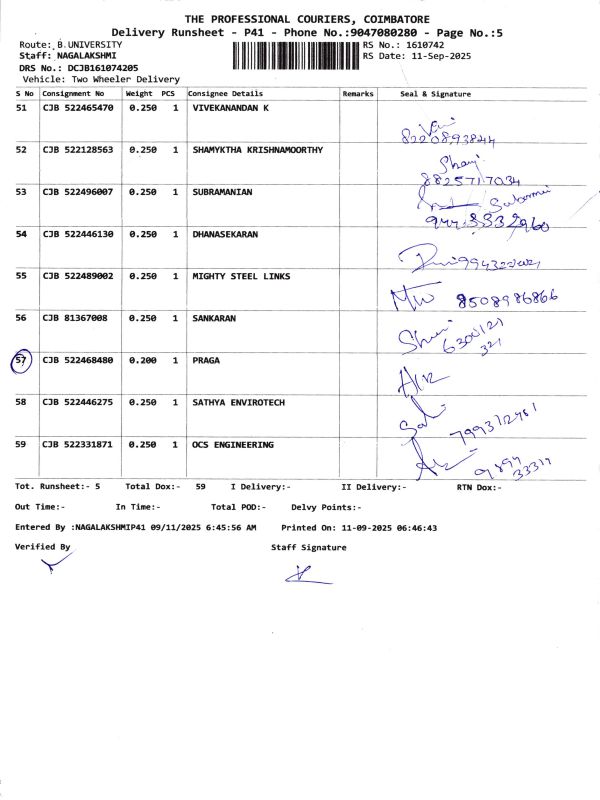 THE PROFESSIONAL COURIERS, COIMBATORE
Delivery Runsheet - P41 - Phone No.:9047080280 - Page No.:5
Route: B.UNIVERSITY RS No.: 1610742
Staff: NAGALAKSHMI RS Date: 11-Sep-2025
DRS No.: DCJB161074205
Vehicle: Two Wheeler Delivery
S No Consignment No Weight PCS Consignee Details Remarks Seal & Signature
51 CJB 522465470 0.250 1 VIVEKANANDAN K
8220893844
52 CJB 522128563 0.250 1 SHAMYKTHA KRISHNAMOORTHY
8825717034
53 CJB 522496007 0.250 1 SUBRAMANIAN
54 CJB 522446130 0.250 1 DHANASEKARAN
55 CJB 522489002 0.250 1 MIGHTY STEEL LINKS
8508986866
56 CJB 81367008 0.250 1 SANKARAN
6300121
321
57 CJB 522468480 0.200 1 PRAGA
58 CJB 522446275 0.250 1 SATHYA ENVIROTECH
59 CJB 522331871 0.250 1 OCS ENGINEERING
Tot. Runsheet:- 5 Total Dox:- 59 I Delivery:- II Delivery:- RTN Dox:-
Out Time:- In Time:- Total POD:- Delvy Points:-
Entered By :NAGALAKSHMIP41 09/11/2025 6:45:56 AM Printed On: 11-09-2025 06:46:43
Verified By Staff Signature